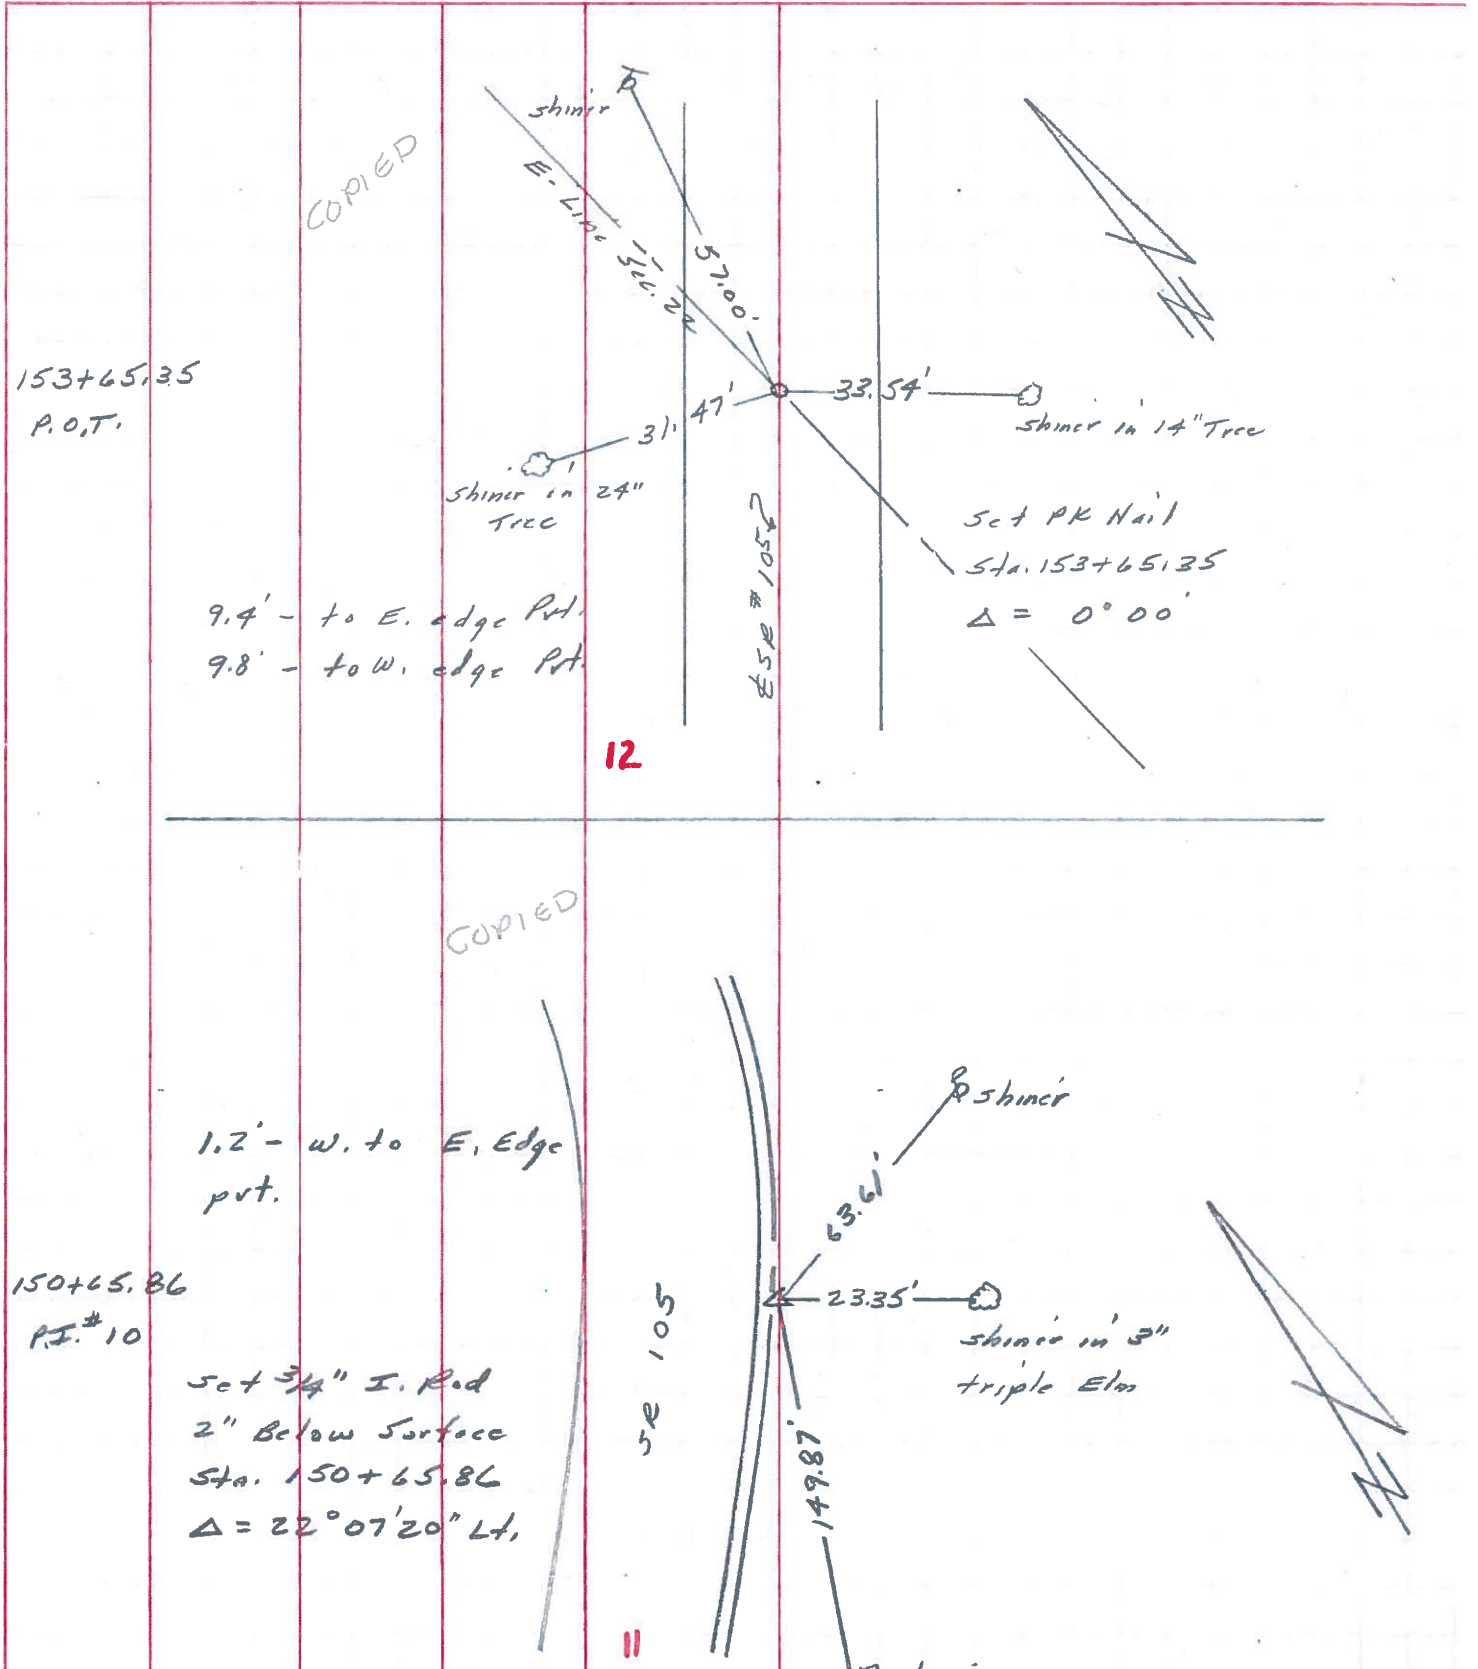 COPIED
shiner
E. Line Sec. 24
57.00'
153+65.35
P.O.T.
33.54'
31.47'
shiner in 14" Tree
shiner in 24"
Tree
Set PK Nail
Sta. 153+65.35
Δ = 0° 00'
9.4' - to E. edge Pvt.
9.8' - to W. edge Pvt.
℄ SR #105
N
12
COPIED
shiner
1.2' - W. to E. Edge
pvt.
63.61'
150+65.86
P.I. #10
23.35'
shiner in 3"
triple Elm
SR 105
Set 3/4" I. Rod
2" Below Surface
Sta. 150+65.86
Δ = 22°07'20" Lt.
149.87'
N
11